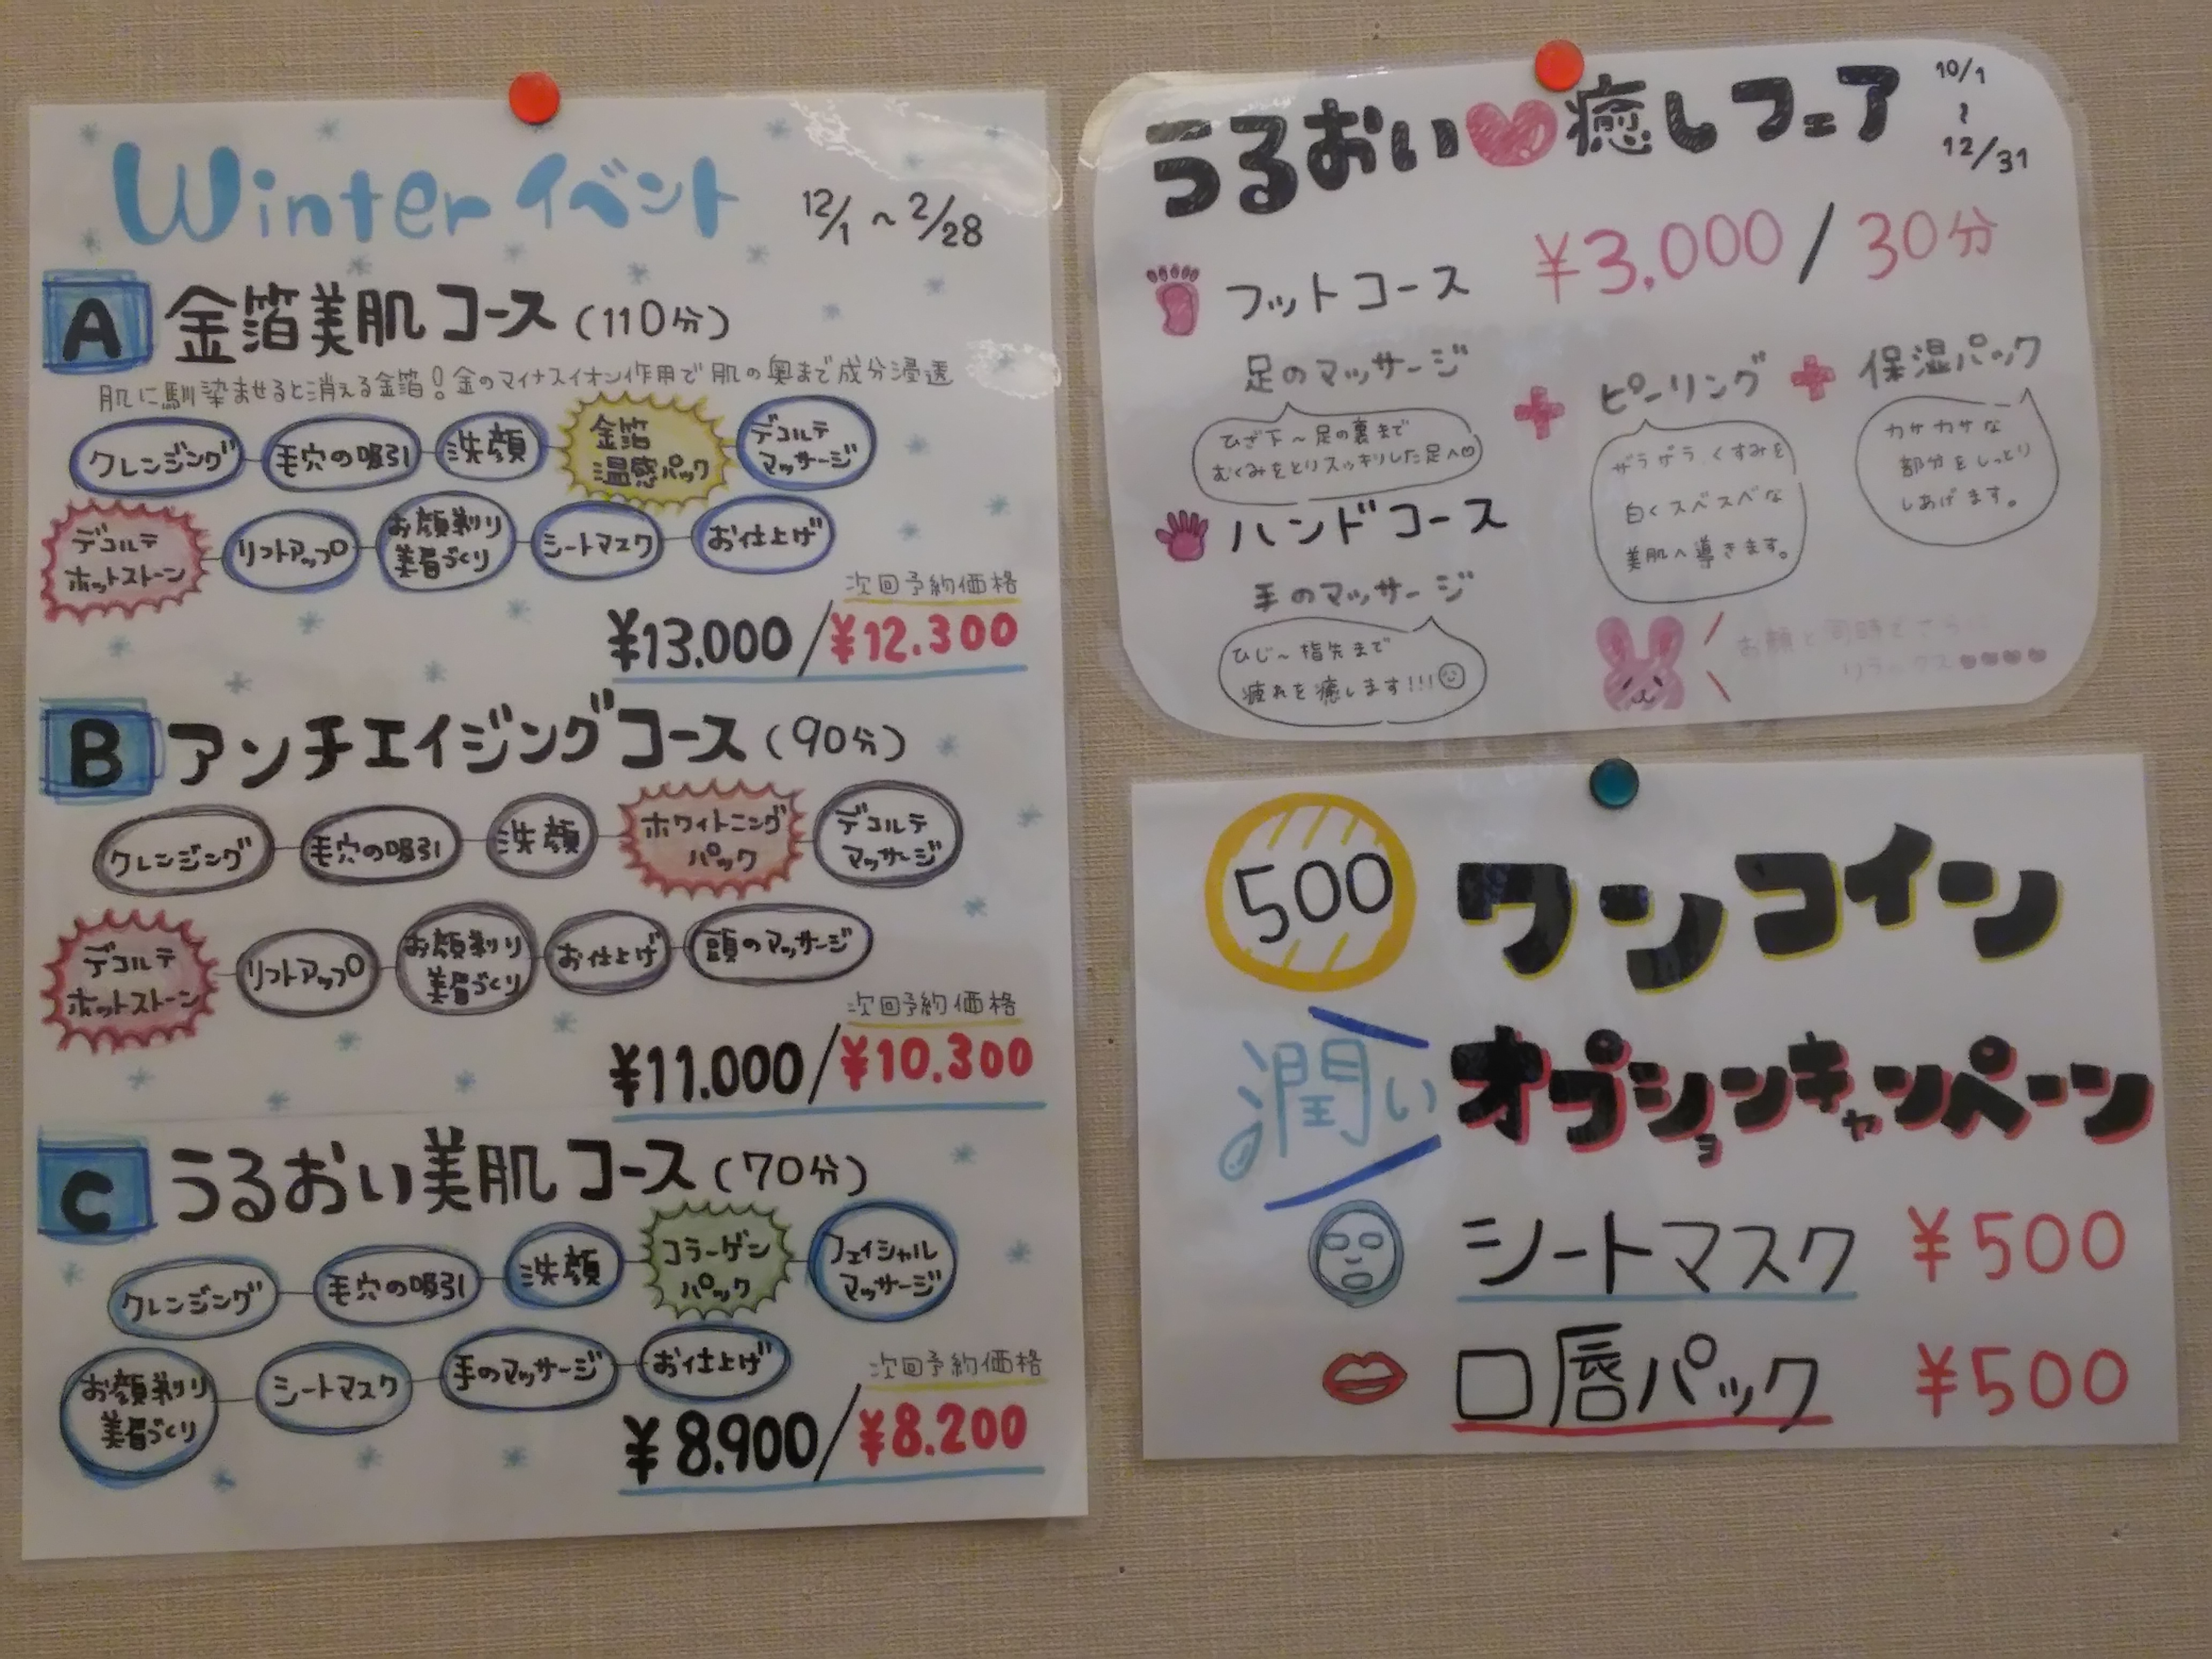 Winter イベント 12/1 ~ 2/28
A 金箔美肌コース (110分)
肌に馴染ませると消える金箔!金のマイナスイオン作用で肌の奥まで成分浸透
クレンジング 毛穴の吸引 洗顔 金箔温感パック デコルテマッサージ
デコルテホットストーン リフトアップ お顔剃り美眉づくり シートマスク お仕上げ
次回予約価格
¥13.000/¥12.300
B アンチエイジングコース (90分)
クレンジング 毛穴の吸引 洗顔 ホワイトニングパック デコルテマッサージ
デコルテホットストーン リフトアップ お顔剃り美眉づくり お仕上げ 頭のマッサージ
次回予約価格
¥11.000/¥10.300
C うるおい美肌コース (70分)
クレンジング 毛穴の吸引 洗顔 コラーゲンパック フェイシャルマッサージ
お顔剃り美眉づくり シートマスク 手のマッサージ お仕上げ
次回予約価格
¥8.900/¥8.200
うるおい♥癒しフェア 10/1 ~ 12/31
フットコース ¥3.000/30分
足のマッサージ + ピーリング + 保湿パック
ひざ下~足の裏まで
むくみをとりスッキリした足へ♡
ザラザラくすみを
白くスベスベな
美肌へ導きます。
カサカサな
部分をしっとり
しあげます。
ハンドコース
手のマッサージ
ひじ~指先まで
疲れを癒します!!!☺
お顔と同時でさらに
リラックス♥♥♥♥
500 ワンコイン
潤い オプションキャンペーン
シートマスク ¥500
口唇パック ¥500